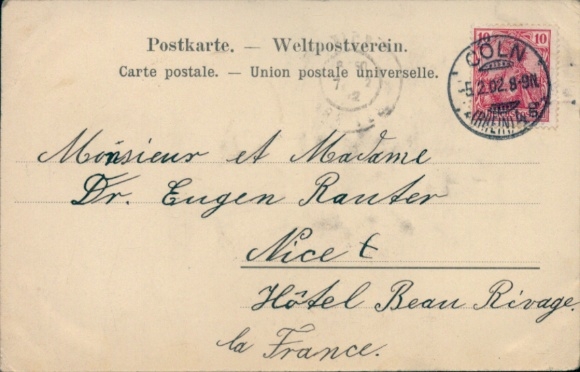 Postkarte. — Weltpostverein.
Carte postale. — Union postale universelle.
10 10
CÖLN
5.2.02.8-9N.
(RHEIN)
Monsieur et Madame
Dr. Eugen Rauter
Nice
Hôtel Beau Rivage.
la France.